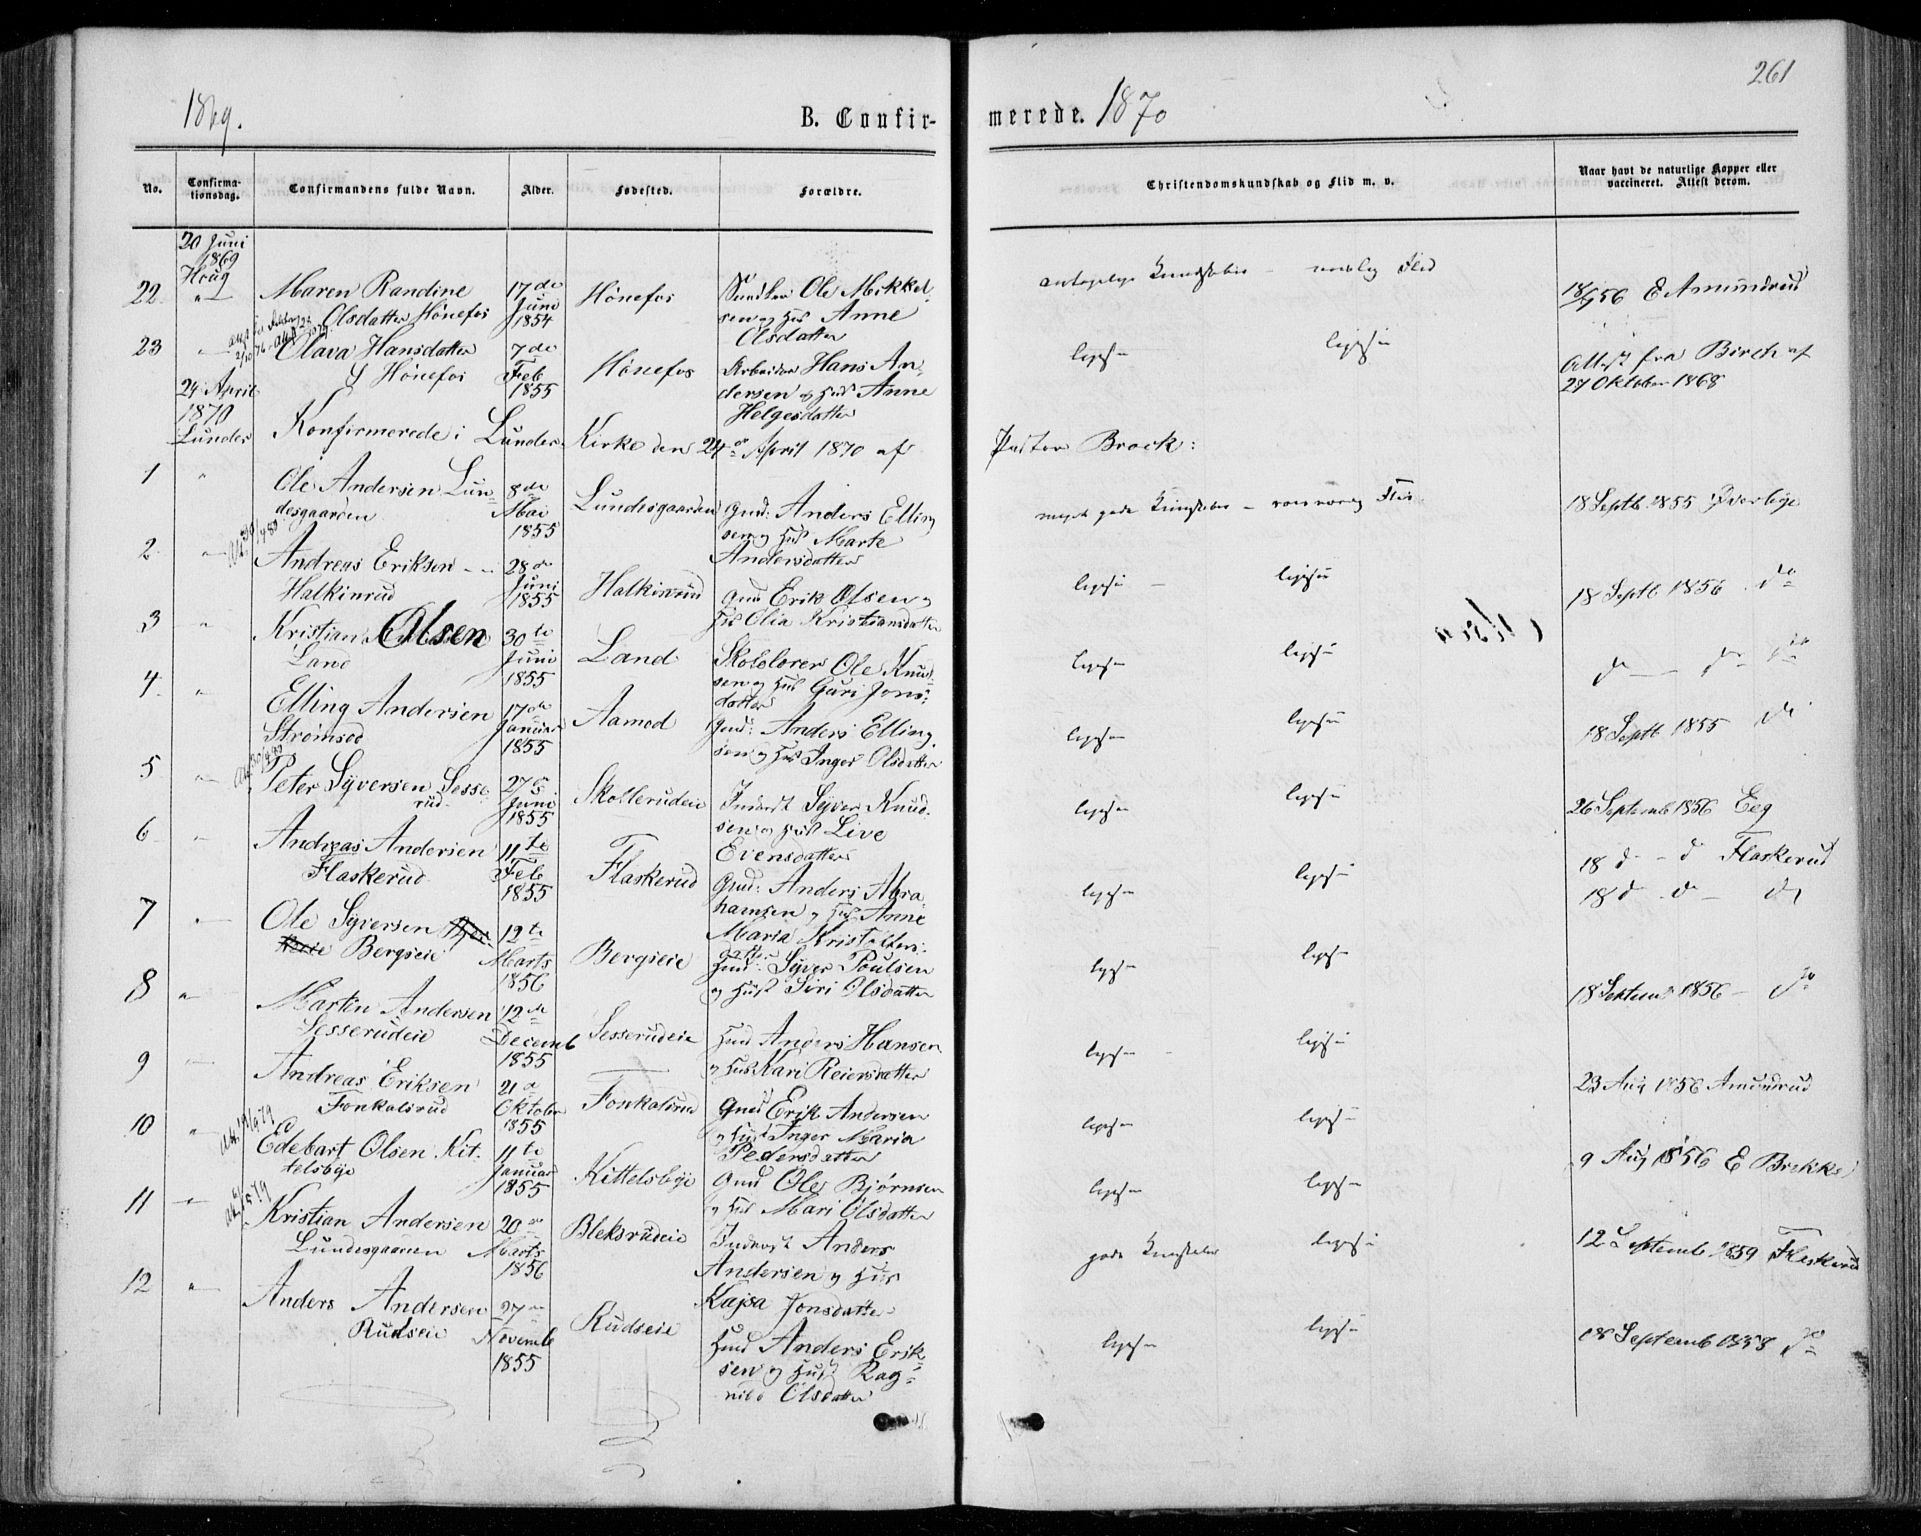 261
1869. B. Confirmerede. 1870
No. Confirmationsdag. Confirmandens fulde Navn. Alder. Fødested. Forældre. Christendomskundskab og Flid m. v. Naar havt de naturlige Kopper eller vaccineret. Attest derom.
20 Juni
1869
Houg
22 " Maren Randine Olsdatter Hønefos 17de Juni 1854 Hønefos Ole Mikkelsen og Hus Anne Olsdatter Flid 18/9 56 E Amundrud
23 " Olava Hansdatter Hønefos 7de Feb 1855 Hønefos Arbeider Hans Andersen og Hus Anne Helgesdatter ligesaa ligesaa Attest fra Birch af 27 Oktober 1868
24 April
1870
Lunder Konfirmerede i Lunder Kirke den 24de April 1870 af Pastor Brock:
1 " Ole Andersen Lundesgaarden 8de Mai 1855 Lundesgaarden Gmd: Anders Ellingsen og Hus Marte Andersdatter meget gode Kundskaber Flid 18 Septb 1855 Øverbye
2 " Andreas Eriksen Halkinrud 28de Juni 1855 Halkinrud Gmd Erik Olsen og Hus Olia Kristiansdatter ligesaa ligesaa 18 Septb 1856 do
3 " Kristian Olsen Land 30te Juni 1855 Land Skolelærer Ole Knudsen og Hus Guri Jonsdatter ligesaa ligesaa do do do
4 " Elling Andersen Strømsod 17de Januar 1855 Aamod Gmd: Anders Ellingsen og Hus Inger Olsdatter ligesaa ligesaa 18 Septb 1855 do
5 " Peter Syversen Sesserud 27de Juni 1855 Skollerudeie Inderst Syver Knudsen og Hust Live Evensdatter ligesaa ligesaa 26 Septemb 1856 Eeg
6 " Andreas Andersen Flaskerud 11te Feb 1855 Flaskerud Gmd: Anders Abrahamsen og Hus Anne Maria Kristoffersdatter ligesaa ligesaa 18 do do Flaskerud
7 " Ole Syversen Bergseie 12te Marts 1856 Bergseie Husmd: Syver Poulsen og Hust Siri Olsdatter ligesaa ligesaa 18 do do do
8 " Martin Andersen Sesserudeie 12te Decemb 1855 Sesserudeie Husmd Anders Hansen og Hus Kari Reiersdatter ligesaa ligesaa 18 Septemb 1856 do
9 " Andreas Eriksen Fonkalsrud 21de Oktober 1855 Fonkalsrud Gmd Erik Andersen og Hust Inger Maria Pedersdatter ligesaa ligesaa 23 Aug 1856 Amundrud
10 " Edebart Olsen Kittelsbye 11te Januar 1855 Kittelsbye Gmd Ole Bjørnsen og Hus Mari Olsdatter ligesaa ligesaa 9 Aug 1856 E Brekke
11 " Kristian Andersen Lundesgaarden 20de Marts 1856 Bleksrudeie Inderst Anders Andersen og Hus Kajsa Jonsdatter gode Kundskaber ligesaa 12 Septemb 1859 Flaskerud
12 " Anders Andersen Rudseie 27de Novemb 1855 Rudseie Husmd Anders Eriksen og Hust Ragnild Olsdatter ligesaa ligesaa 18 Septemb 1858 do